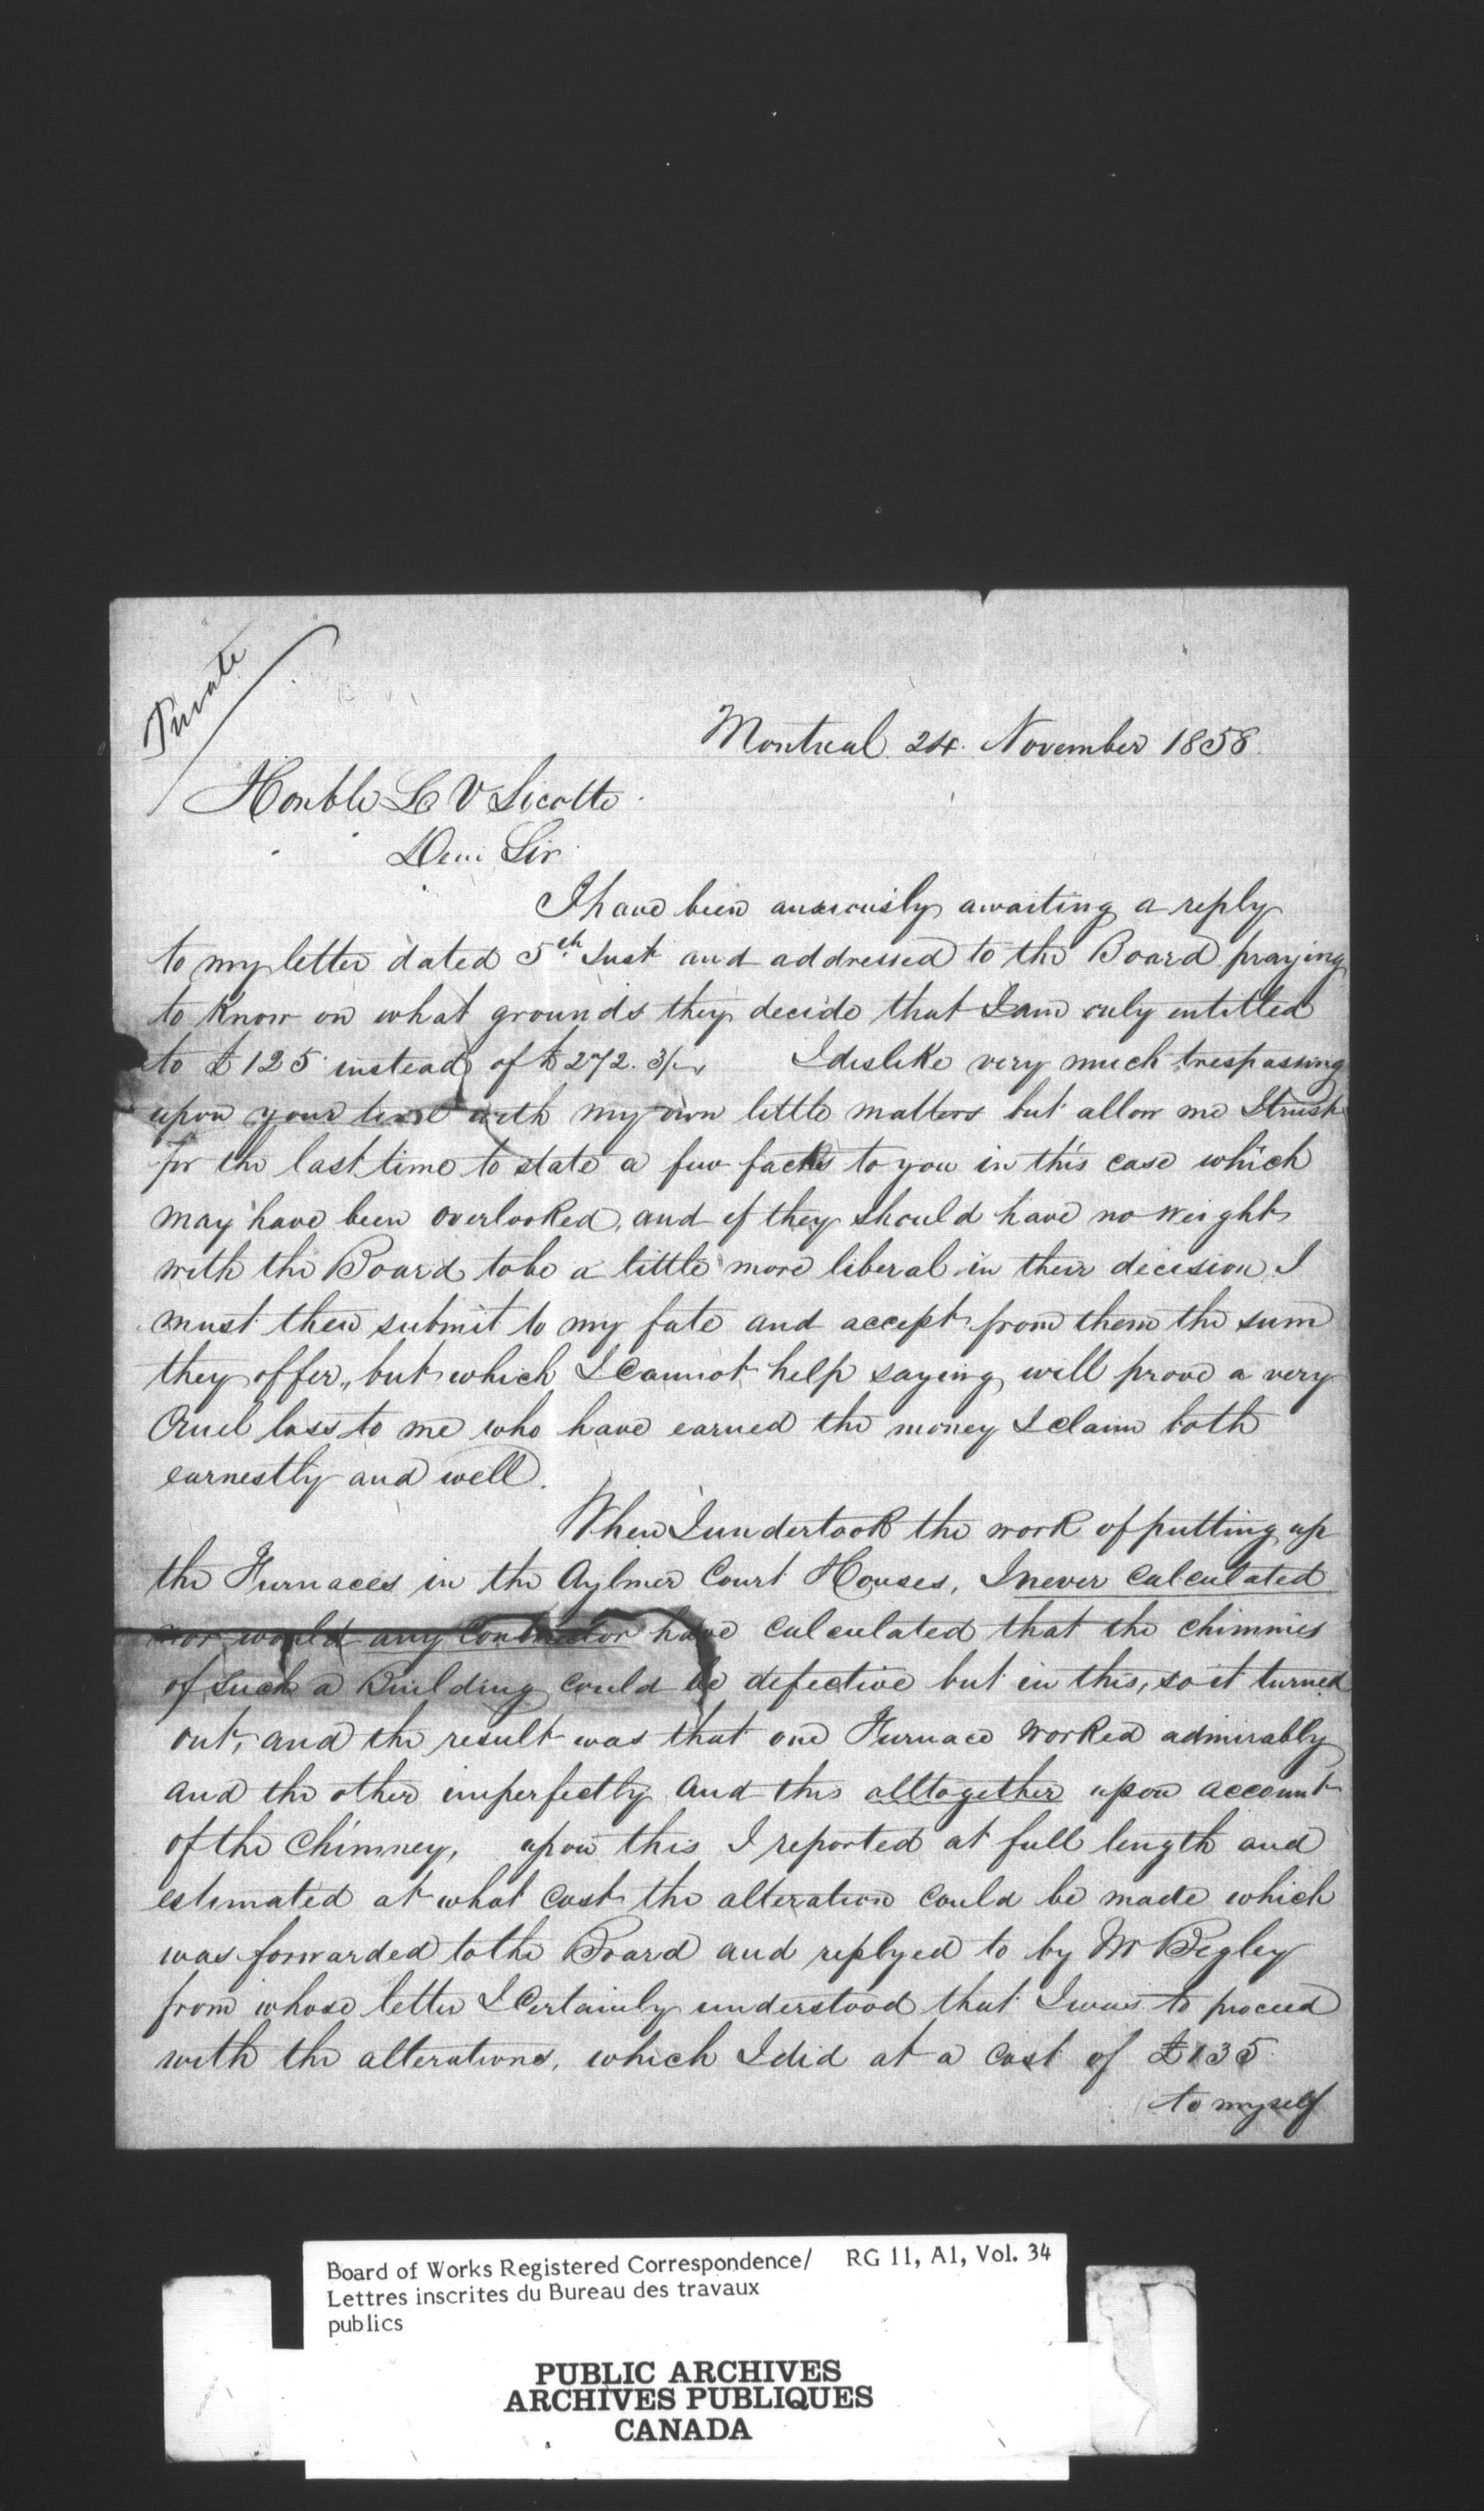 Private
Montreal 24. November 1858
Honble L V Sicotte
Dear Sir
I have been anxiously awaiting a reply
to my letter dated 5th Inst and addressed to the Board praying
to know on what grounds they decide that I am only entitled
to £125 instead of £272. 3/-  I dislike very much trespassing
upon your time with my own little matters but allow me I trust
for the last time to state a few facts to you in this case which
may have been overlooked, and if they should have no weight
with the Board to be a little more liberal in their decision I
must then submit to my fate and accept from them the sum
they offer, but which I cannot help saying will prove a very
Cruel loss to me who have earned the money I claim both
earnestly and well.
When I undertook the work of putting up
the Furnaces in the Aylmer Court Houses, I never calculated
nor would any Contractor have calculated that the chimnies
of such a Building could be defective but in this, so it turned
out, and the result was that one Furnace worked admirably
and the other imperfectly and this alltogether upon account
of the Chimney, upon this I reported at full length and
estimated at what cost the alteration could be made which
was forwarded to the Board and replyed to by Mr Begley
from whose letter I Certainly understood that I was to proceed
with the alterations, which I did at a cost of £135
to myself
Board of Works Registered Correspondence/ RG 11, A1, Vol. 34
Lettres inscrites du Bureau des travaux
publics
PUBLIC ARCHIVES
ARCHIVES PUBLIQUES
CANADA